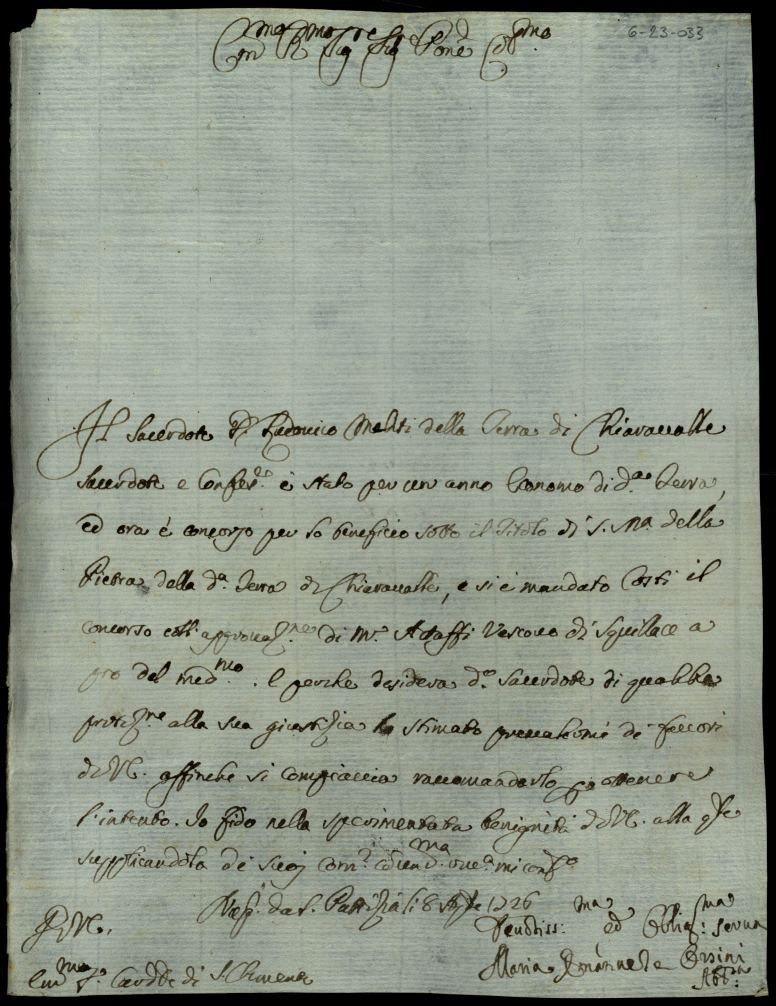 6-23-033
Em.mo R.mo Sig.re Sig.e P.one Col.mo
Il Sacerdote D. Lodovico Meliti della Terra di Chiaravalle
Sacerdote e Confes.re è stato per un anno Economo di d.a Terra,
ed ora è concorso per lo beneficio sotto il Titolo di S. M.a della
Pietra della d.a Terra di Chiaravalle, e si è mandato Costì il
concorso coll'approvaz.ne di M.r Abaffi Vescovo di Squillace a
pro del med.mo. E perche desidera d.o Sacerdote di qualche
protez.ne alla sua giustizia ha stimato prevalermi de favori
di V.E. affinche si compiaccia raccomandarlo per ottenere
l'intento. Io fido nella sperimentata benignità di V.E. alla q.le
supplicandola de suoi com.di
Nap. da S. Patrizia li 8 1726
D.V.E.
Devotiss:ma ed Oblig:ma Serva
Em.mo S.r Card.le di S. Clemente
Maria Emanuela Orsini
Abb:ssa